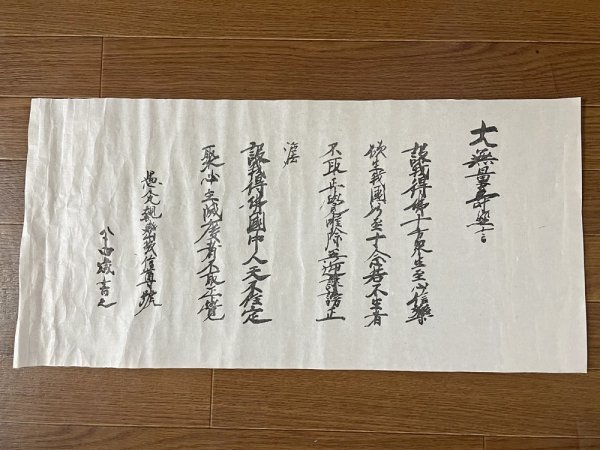 大無量壽経言
設我得佛十方衆生至心信樂
欲生我國乃至十念若不生者
不取正覺唯除五逆誹謗正
法
設我得佛國中人天不住定
聚必至滅度者不取正覺
愚禿親鸞敬信尊號
八十四歳書之